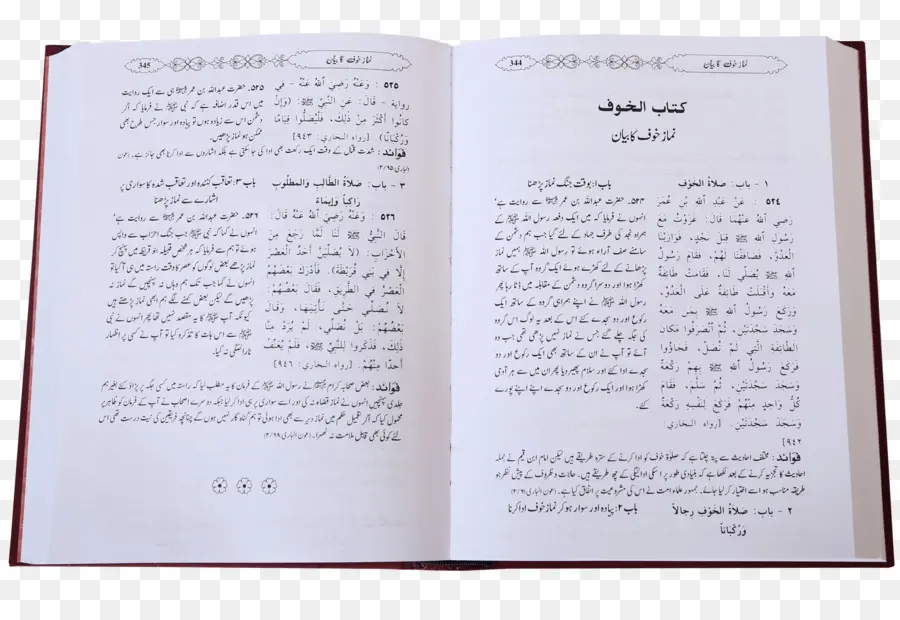 نماز خوف کا بیان
344
كتاب الخوف
نماز خوف کا بیان
١ - باب: صَلاةُ الخَوْفِ
٥٢٤ : عَنْ عَبْدِ اللهِ بْنِ عُمَرَ
رَضِيَ اللهُ عَنْهُمَا قَالَ: غَزَوْتُ مَعَ
رَسُولِ اللهِ ﷺ قِبَلَ نَجْدٍ، فَوَازَيْنَا
العَدُوَّ، فَصَافَفْنَا لَهُمْ، فَقَامَ رَسُولُ
اللهِ ﷺ يُصَلِّي لَنَا، فَقَامَتْ طَائِفَةٌ
مَعَهُ وَأَقْبَلَتْ طَائِفَةٌ عَلَى العَدُوِّ،
وَرَكَعَ رَسُولُ اللهِ ﷺ بِمَنْ مَعَهُ
وَسَجَدَ سَجْدَتَيْنِ، ثُمَّ انْصَرَفُوا مَكَانَ
الطَّائِفَةِ الَّتِي لَمْ تُصَلِّ، فَجَاؤُوا
فَرَكَعَ رَسُولُ اللهِ ﷺ بِهِمْ رَكْعَةً
وَسَجَدَ سَجْدَتَيْنِ، ثُمَّ سَلَّمَ، فَقَامَ
كُلُّ وَاحِدٍ مِنْهُمْ فَرَكَعَ لِنَفْسِهِ رَكْعَةً
وَسَجَدَ سَجْدَتَيْنِ. [رواه البخاري:
٩٤٢]
باب ۱: بوقت جنگ نماز پڑھنا
۵۲۴۔ حضرت عبداللہ بن عمر ﷺ سے روایت ہے'
انہوں نے فرمایا کہ میں ایک دفعہ رسول اللہ ﷺ کے
ہمراہ نجد کی طرف جہاد کے لئے گیا جب ہم دشمن کے
سامنے صف آراء ہوئے تو رسول اللہ ﷺ ہمیں نماز
پڑھانے کے لئے کھڑے ہوئے ایک گروہ آپ کے ساتھ
کھڑا ہوا اور دوسرا گروہ دشمن کے مقابلہ میں ڈٹا رہا پھر
رسول اللہ ﷺ نے اپنے ہمراہی گروہ کے ساتھ ایک
رکوع اور دو سجدے کئے اس کے بعد یہ لوگ اس گروہ
کی جگہ چلے گئے جس نے نماز نہیں پڑھی تھی جب وہ
آئے تو آپ نے ان کے ساتھ بھی ایک رکوع اور دو
سجدے ادا کئے اور سلام پھیر دیا پھر ان میں سے ہر آدمی
کھڑا ہوا اور ایک رکوع اور دو سجدے اپنے اپنے پورے
کئے۔
فوائد: مختلف احادیث سے پتہ چلتا ہے کہ صلوٰۃ خوف کو ادا کرنے کے سترہ طریقے ہیں لیکن امام ابن قیم نے جملہ
احادیث کا تجزیہ کرنے کے بعد لکھا ہے کہ بنیادی طور پر اسکی ادائیگی کے چھ طریقے ہیں۔ حالات و ظروف کے پیش نظر جو
طریقہ مناسب ہو اسے اختیار کر لیا جائے۔ جمہور علماء امت نے اس کی مشروعیت پر اتفاق کیا ہے۔ (عون الباری ۲/۶۱)
٢ - باب: صَلاةُ الخَوْفِ رِجالاً
وَرُكْبَاناً
باب ۲: پیادہ اور سوار ہو کر نماز خوف ادا کرنا
نماز خوف کا بیان
345
٥٢٥ : وَعَنْهُ رَضِيَ اللهُ عَنْهُ - في
رواية - قَالَ: عَنِ النَّبِيِّ ﷺ: (وَإِنْ
كَانُوا أَكْثَرَ مِنْ ذَلِكَ، فَلْيُصَلُّوا قِيَامًا
وَرُكْبَانًا) [رواه البخاري: ٩٤٣]
۵۲۵۔ حضرت عبداللہ بن عمر ﷺ ہی سے ایک روایت
میں اس قدر اضافہ ہے کہ نبی ﷺ نے فرمایا کہ اگر
دشمن اس سے زیادہ ہوں تو پیادہ اور سوار جس طرح بھی
ممکن ہو نماز پڑھیں۔
فوائد: شدت قتال کے وقت ایک رکعت بھی ادا کی جا سکتی ہے بلکہ اشاروں سے ادا کرنا بھی جائز ہے۔ (عون
الباری ۲/۶۵)
٣ - باب: صَلاةُ الطَّالِبِ وَالمَطْلُوبِ
رَاكِباً وَإِيمَاءً
٥٢٦ : وَعَنْهُ رَضِيَ اللهُ عَنْهُ قَالَ:
قَالَ النَّبِيُّ ﷺ لَنَا لَمَّا رَجَعَ مِنَ
الأَحْزَابِ: (لاَ يُصَلِّيَنَّ أَحَدٌ الْعَصْرَ
إِلَّا فِي بَنِي قُرَيْظَةَ). فَأَدْرَكَ بَعْضُهُمُ
الْعَصْرُ فِي الطَّرِيقِ، فَقَالَ بَعْضُهُمْ:
لاَ نُصَلِّي حَتَّى نَأْتِيَهَا، وَقَالَ
بَعْضُهُمْ: بَلْ نُصَلِّي، لَمْ يُرَدْ مِنَّا
ذَلِكَ، فَذَكَرُوا لِلنَّبِيِّ ﷺ، فَلَمْ يُعَنِّفْ
أَحَدًا مِنْهُمْ. [رواه البخاري: ٩٤٦]
باب ۳: تعاقب کنندہ اور تعاقب شدہ کا سواری پر
اشارے سے نماز پڑھنا
۵۲۶۔ حضرت عبداللہ بن عمر ﷺ سے روایت ہے'
انہوں نے فرمایا کہ نبی ﷺ جب جنگ احزاب سے واپس
ہوئے تو ہم سے فرمایا کہ ہر شخص قبیلہ بنو قریظہ میں پہنچ کر
نماز پڑھے بعض لوگوں کو عصر کا وقت راستہ میں ہی آگیا تو
انہوں نے کہا جب تک ہم وہاں نہ پہنچیں گے نماز نہ
پڑھیں گے لیکن بعض کہنے لگے ہم ابھی نماز پڑھتے ہیں
کیونکہ آپ کا یہ مقصد نہیں تھا پھر انہوں نے نبی
ﷺ سے اس بات کا تذکرہ کیا تو آپ نے کسی پر اظہار
ناراضگی نہ کیا۔
فوائد: بعض صحابہ کرام نے رسول اللہ ﷺ کے فرمان کا یہ مطلب لیا کہ راستہ میں کسی جگہ پر پڑاؤ کئے بغیر ہم
جلدی پہنچیں انہوں نے نماز قضاء نہ کی اور اسے سواری پر ہی ادا کر لیا جبکہ دوسرے اصحاب نے آپ کے فرمان کو ظاہر پر
محمول کیا کہ اگر تعمیل حکم میں نماز دیر سے بھی ادا ہوئی تو ہم گناہ گار نہیں ہوں گے چنانچہ فریقین کی نیت درست تھی اس
لئے کوئی بھی قابل ملامت نہ ٹھہرا۔ (عون الباری ۲/۶۹)